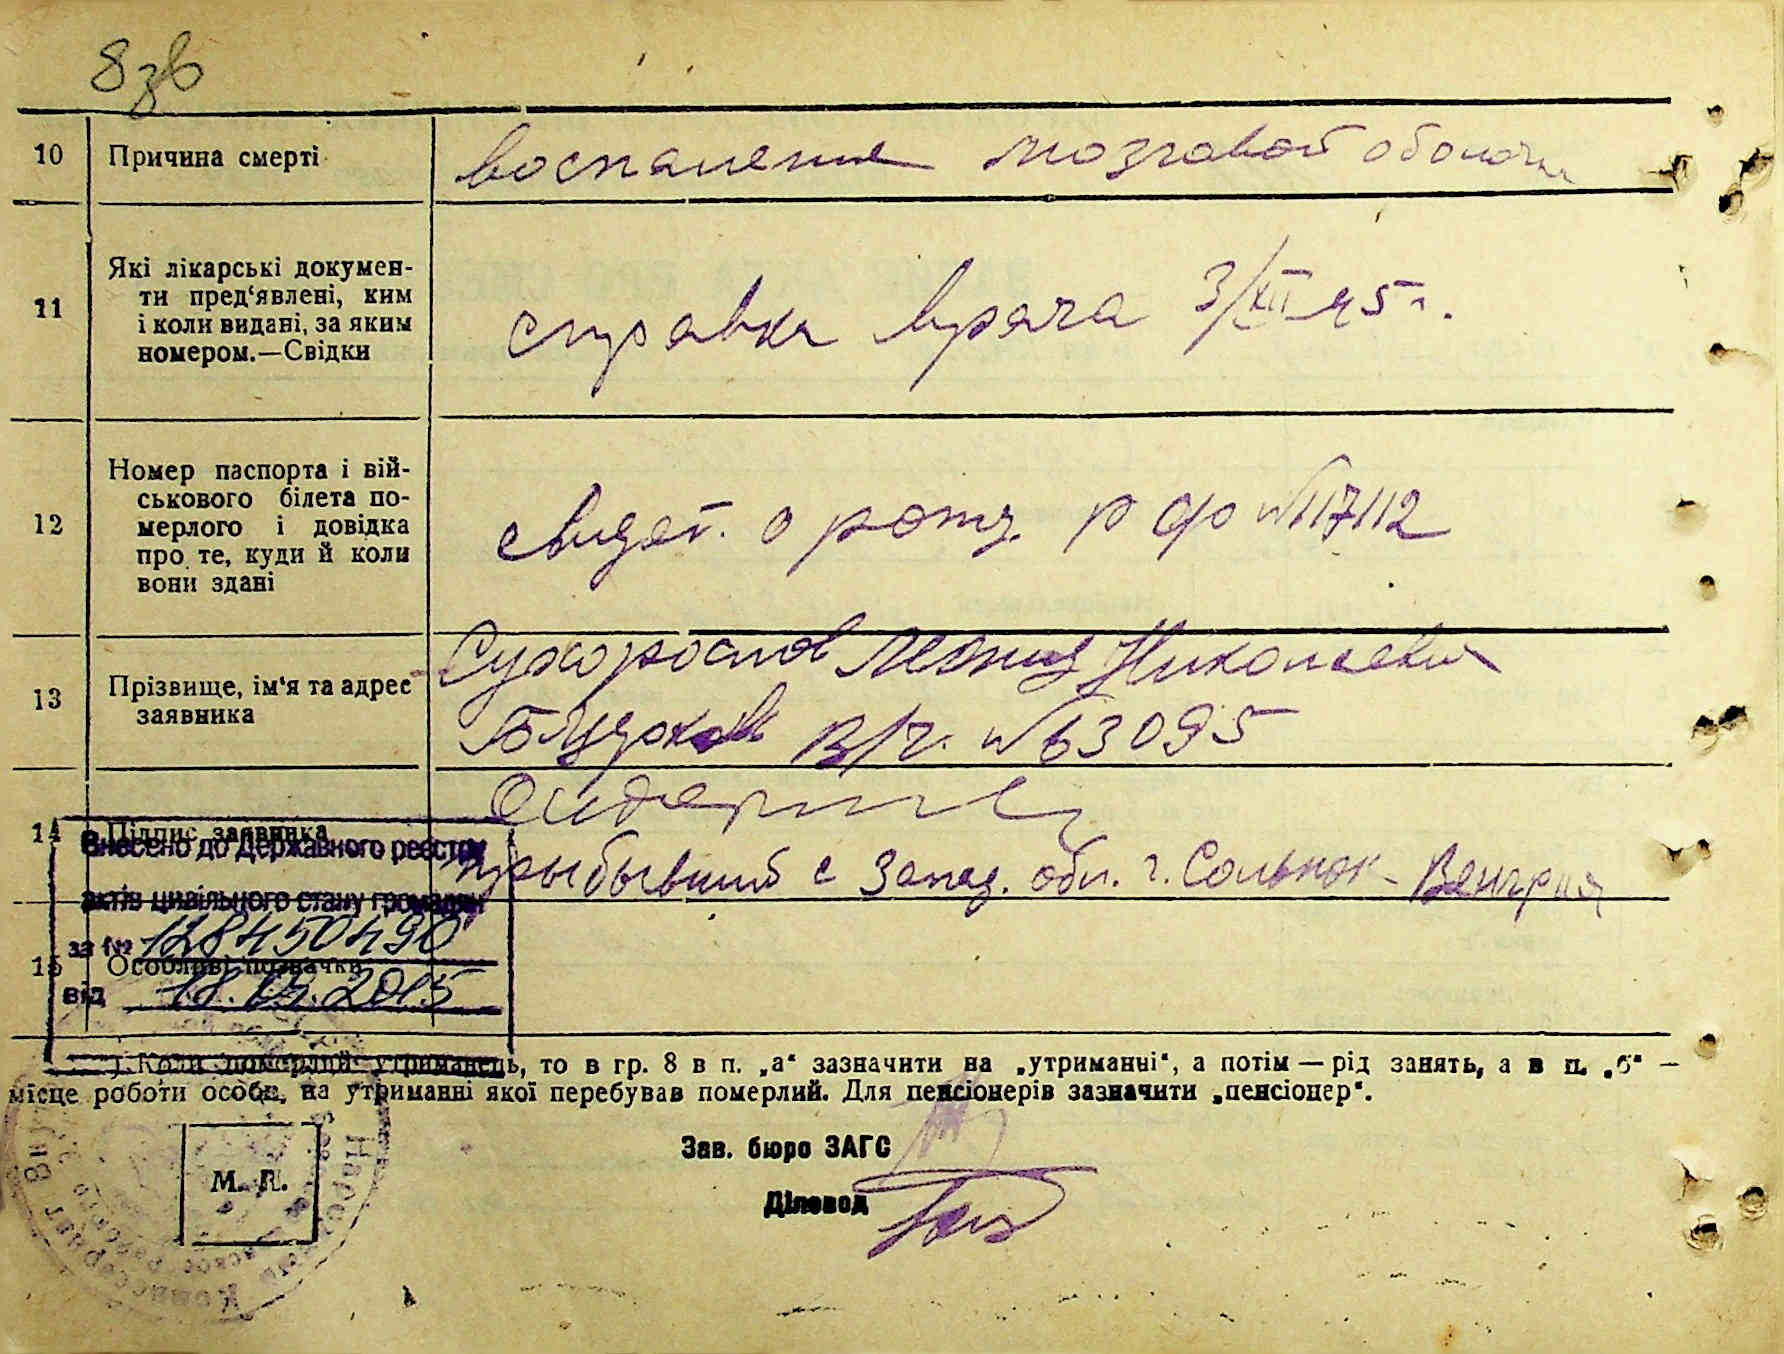 8зв
10 Причина смерті воспаление мозговой оболочк
11 Які лікарські докумен-
ти пред‘явлені, ким
і коли видані, за яким
номером.—Свідки
справка врача 3/XII 45 г.
12 Номер паспорта і вій-
ськового білета по-
мерлого і довідка
про те, куди й коли
вони здані
свидет. о рожд. №117112
13 Прізвище, ім‘я та адрес
заявника
Сухоростов Леонид Николаевич
в/ч. №63095
14 Підпис заявника
прыбывший с Запад. обл. г. Сольнок - Венгрия
15 Особливі позначки
Внесено до Державного реєстру
актів цивільного стану громадян
за № 128450490
від 18.03.2015
) Коли померлий утриманець, то в гр. 8 в п. „а“ зазначити на „утриманні“, а потім — рід занять, а в п. „б“ —
місце роботи особи, на утриманні якої перебував померлий. Для пенсіонерів зазначити „пенсіонер“.
Зав. бюро ЗАГС
М. П.
Діловод